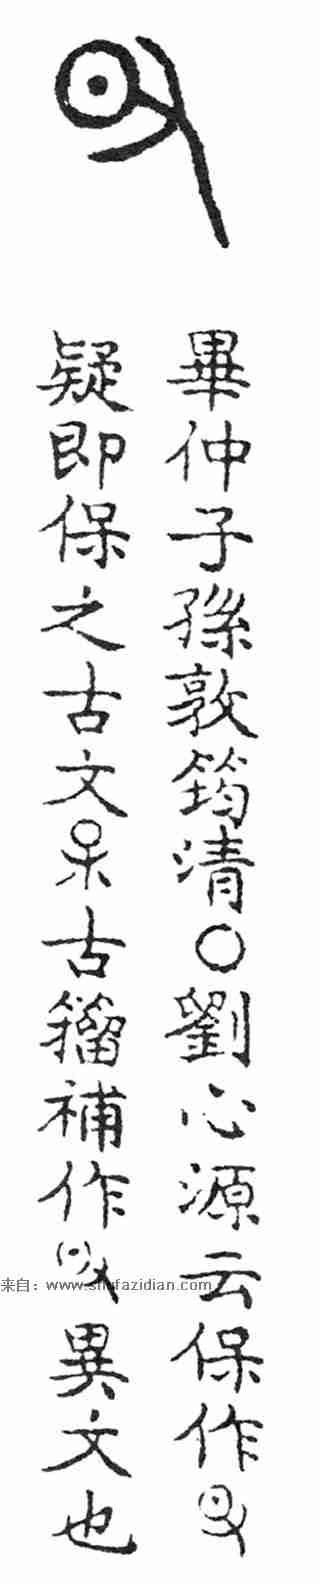 畢仲子孫敦筠清〇劉心源云保作
疑即保之古文古籀補作異文也
来自：www.shufazidian.com